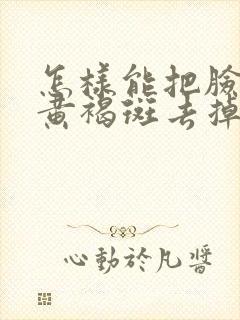 怎樣能把臉
黃褐斑去掉
心動於凡醬